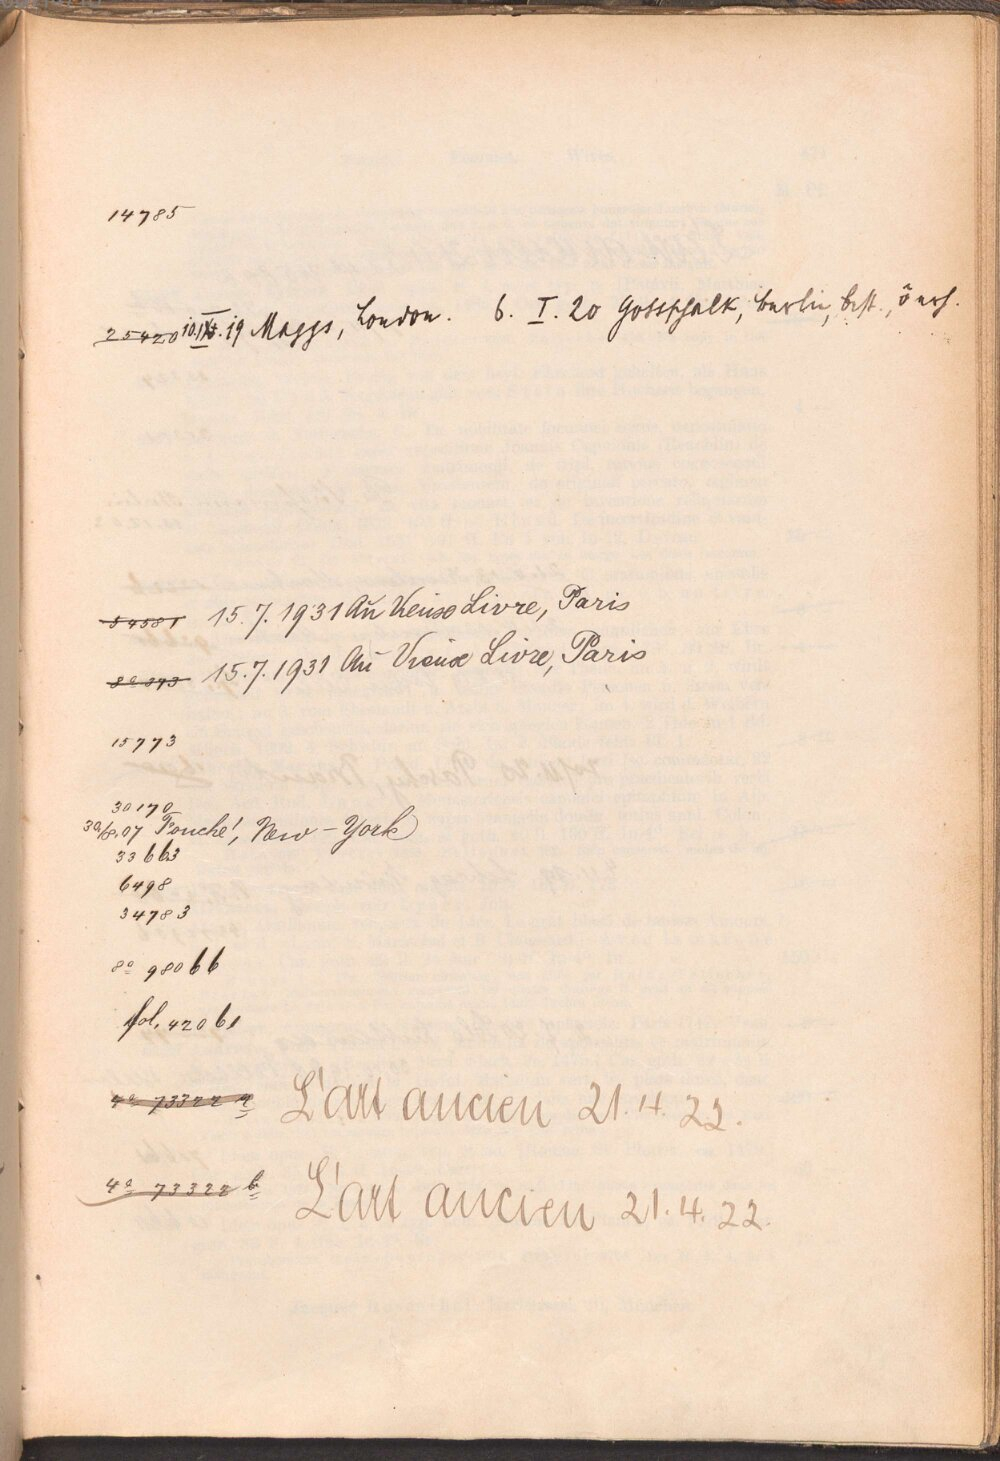 14785
25420 10.IX.19 Maggs, London. 6. I. 20 Gottschalk, Berlin, best.,
54581 15.7.1931 Au Vieux Livre, Paris
8º 393 15.7.1931 Au Vieux Livre, Paris
15773
30170
30/8.07 Fouché, New-York
33663
6498
34783
8º 98066
fol. 42061
4º 73322 a L'art ancien 21.4.22.
4º 73322 b L'art ancien 21.4.22.